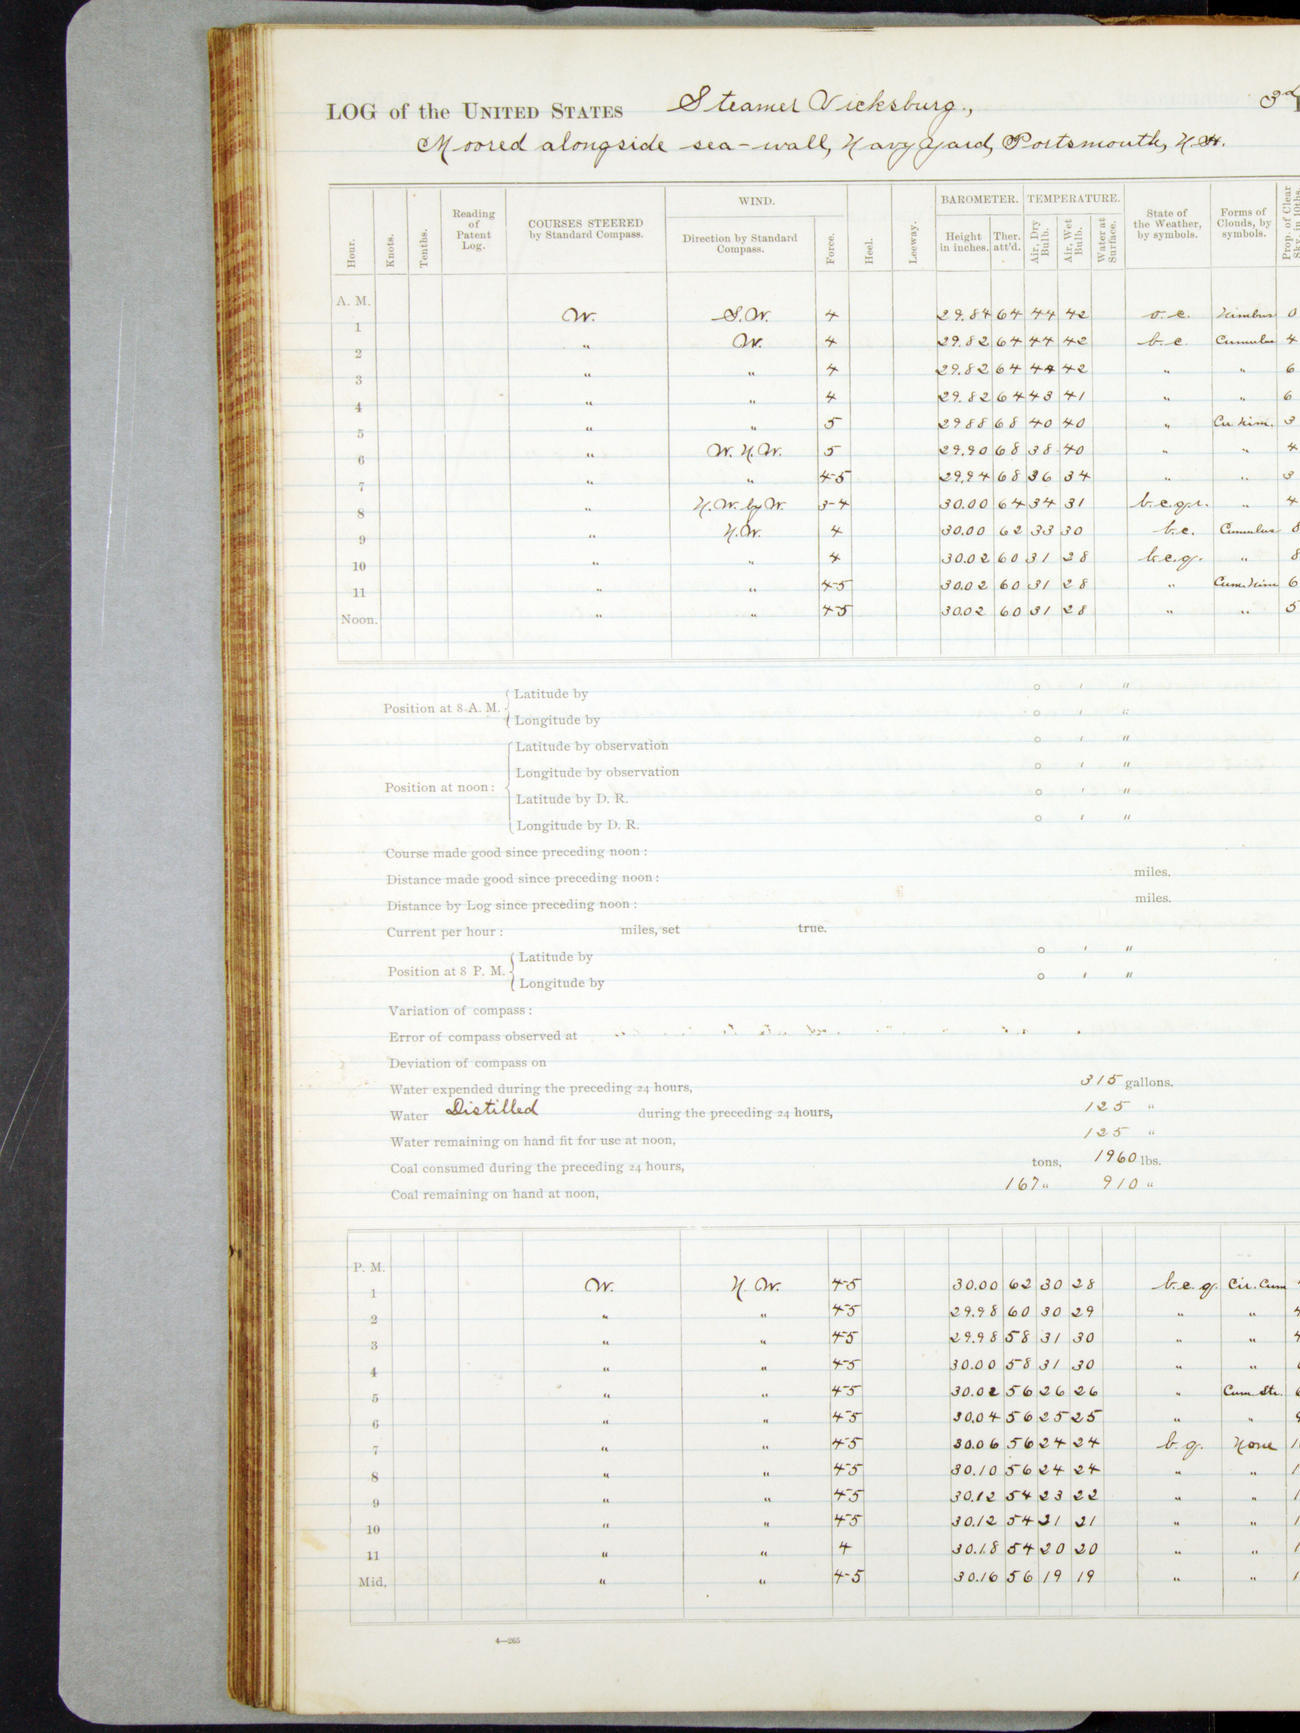 LOG of the UNITED STATES Steamer Vicksburg., 3d
Moored alongside sea-wall, Navy Yard, Portsmouth, N.H.
Hour. Knots. Tenths. Reading of Patent Log. COURSES STEERED by Standard Compass. WIND. Direction by Standard Compass. Force. Heel. Leeway. BAROMETER. Height in inches. Ther. att'd. TEMPERATURE. Air, Dry Bulb. Air, Wet Bulb. Water at Surface. State of the Weather, by symbols. Forms of Clouds, by symbols. Prop. of Clear Sky, in 10ths.
A. M.
1 W. S.W. 4 29.84 64 44 42 o.c. Nimbus 0
2 " W. 4 29.82 64 44 42 b.c. Cumulus 4
3 " " 4 29.82 64 44 42 " " 6
4 " " 4 29.82 64 43 41 " " 6
5 " " 5 29.88 68 40 40 " Cu. Nim. 3
6 " W.N.W. 5 29.90 68 38 40 " " 4
7 " " 4-5 29.94 68 36 34 " " 3
8 " N.W. by W. 3-4 30.00 64 34 31 b.c.q.r. " 4
9 " N.W. 4 30.00 62 33 30 b.c. Cumulus 8
10 " " 4 30.02 60 31 28 b.c.q. " 8
11 " " 4-5 30.02 60 31 28 " Cum. Nim 6
Noon. " " 4-5 30.02 60 31 28 " " 5
Position at 8 A. M. Latitude by ° ′ ″
Longitude by ° ′ ″
Position at noon: Latitude by observation ° ′ ″
Longitude by observation ° ′ ″
Latitude by D. R. ° ′ ″
Longitude by D. R. ° ′ ″
Course made good since preceding noon:
Distance made good since preceding noon: miles.
Distance by Log since preceding noon: miles.
Current per hour: miles, set true.
Position at 8 P. M. Latitude by ° ′ ″
Longitude by ° ′ ″
Variation of compass:
Error of compass observed at
Deviation of compass on
Water expended during the preceding 24 hours, 315 gallons.
Water Distilled during the preceding 24 hours, 125 "
Water remaining on hand fit for use at noon, 125 "
Coal consumed during the preceding 24 hours, tons, 1960 lbs.
Coal remaining on hand at noon, 167 " 910 "
P. M.
1 W. N.W. 4-5 30.00 62 30 28 b.c.q. Cir. Cum
2 " " 4-5 29.98 60 30 29 " " 4
3 " " 4-5 29.98 58 31 30 " " 4
4 " " 4-5 30.00 58 31 30 " "
5 " " 4-5 30.02 56 26 26 " Cum. Str. 6
6 " " 4-5 30.04 56 25 25 " "
7 " " 4-5 30.06 56 24 24 b.q. None
8 " " 4-5 30.10 56 24 24 " "
9 " " 4-5 30.12 54 23 22 " "
10 " " 4-5 30.12 54 21 21 " "
11 " " 4 30.18 54 20 20 " "
Mid. " " 4-5 30.16 56 19 19 " "
4—265